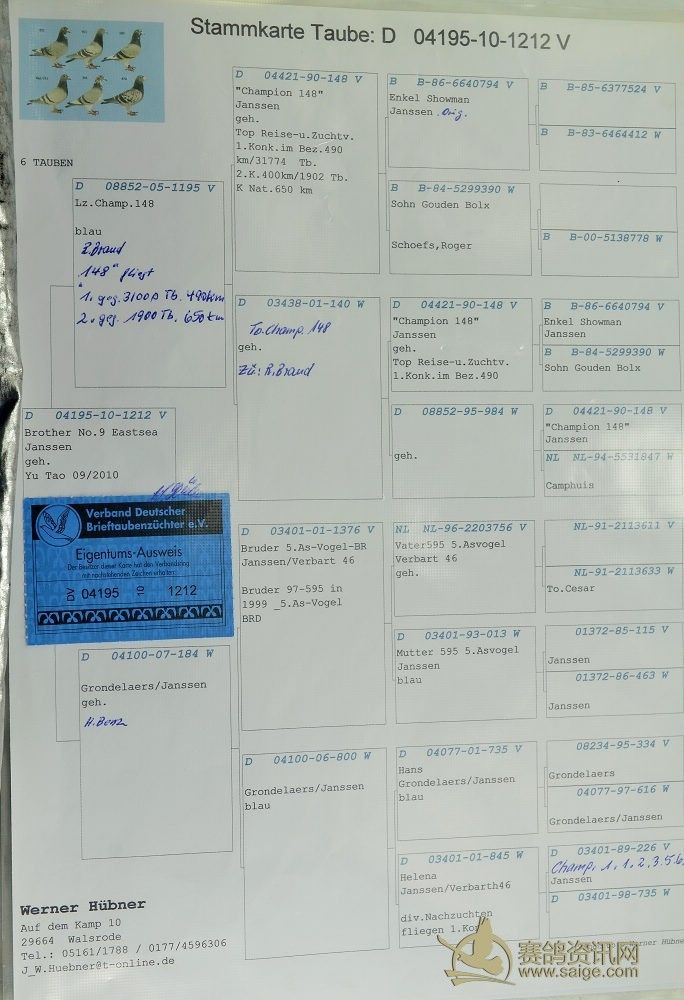 Stammkarte Taube: D 04195-10-1212 V
6 TAUBEN
D 04195-10-1212 V
Brother No.9 Eastsea
Janssen
geh.
Yu Tao 09/2010
Verband Deutscher
Brieftaubenzüchter e.V.
Eigentums-Ausweis
Der Besitzer dieser Karte hat den Verbandsring
mit nachstehenden Zeichen erhalten:
DV 04195 10 1212
D 08852-05-1195 V
Lz.Champ.148
blau
R. Brand
"148" fliegt
1. geg. 3100 Tb. 490km
2. geg. 1900 Tb. 650 km
D 04100-07-184 W
Grondelaers/Janssen
geh.
H. Benz
D 04421-90-148 V
"Champion 148"
Janssen
geh.
Top Reise-u.Zuchtv.
1.Konk.im Bez.490
km/31774 Tb.
2.K.400km/1902 Tb.
K Nat.650 km
D 03438-01-140 W
To. Champ. 148
geh.
Zü: R. Brand
D 03401-01-1376 V
Bruder 5.As-Vogel-BR
Janssen/Verbart 46
Bruder 97-595 in
1999 _5.As-Vogel
BRD
D 04100-06-800 W
Grondelaers/Janssen
blau
B B-86-6640794 V
Enkel Showman
Janssen Orig.
B B-84-5299390 W
Sohn Gouden Bolx
Schoefs,Roger
D 04421-90-148 V
"Champion 148"
Janssen
geh.
Top Reise-u.Zuchtv.
1.Konk.im Bez.490
D 08852-95-984 W
geh.
NL NL-96-2203756 V
Vater595 5.Asvogel
Verbart 46
geh.
D 03401-93-013 W
Mutter 595 5.Asvogel
Janssen
blau
D 04077-01-735 V
Hans
Grondelaers/Janssen
blau
D 03401-01-845 W
Helena
Janssen/Verbarth46
div.Nachzuchten
fliegen 1.Kon
B B-85-6377524 V
B B-83-6464412 W
B B-00-5138778 W
B B-86-6640794 V
Enkel Showman
Janssen
B B-84-5299390 W
Sohn Gouden Bolx
D 04421-90-148 V
"Champion 148"
Janssen
NL NL-94-5531847 W
Camphuis
NL-91-2113611 V
NL-91-2113633 W
To.Cesar
01372-85-115 V
Janssen
01372-86-463 W
Janssen
08234-95-334 V
Grondelaers
04077-97-616 W
Grondelaers/Janssen
D 03401-89-226 V
Champ. 1, 1, 2, 3, 5, 6
Janssen
D 03401-98-735 W
Werner Hübner
Auf dem Kamp 10
29664 Walsrode
Tel.: 05161/1788 / 0177/4596306
J_W.Huebner@t-online.de
Werner Hübne
赛鸽资讯网
www.saige.com